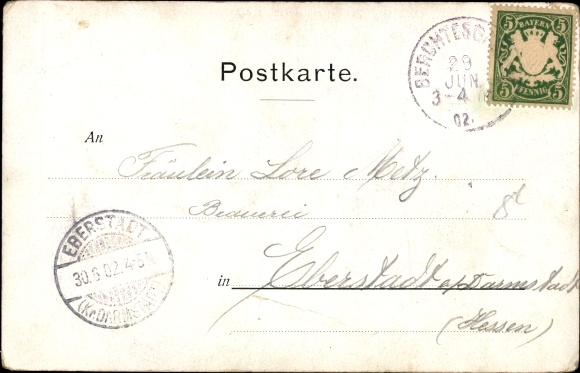 Postkarte.
BERCHTESG
29
JUN.
3-4 N
02.
5 BAYERN 5
5 PFENNIG 5
An
Fräulein Lore Metz.
Brauerei
EBERSTADT
30.6.02.4-5N
(KR.DARMSTADT)
in Eberstadt a/Darmstadt
(Hessen)